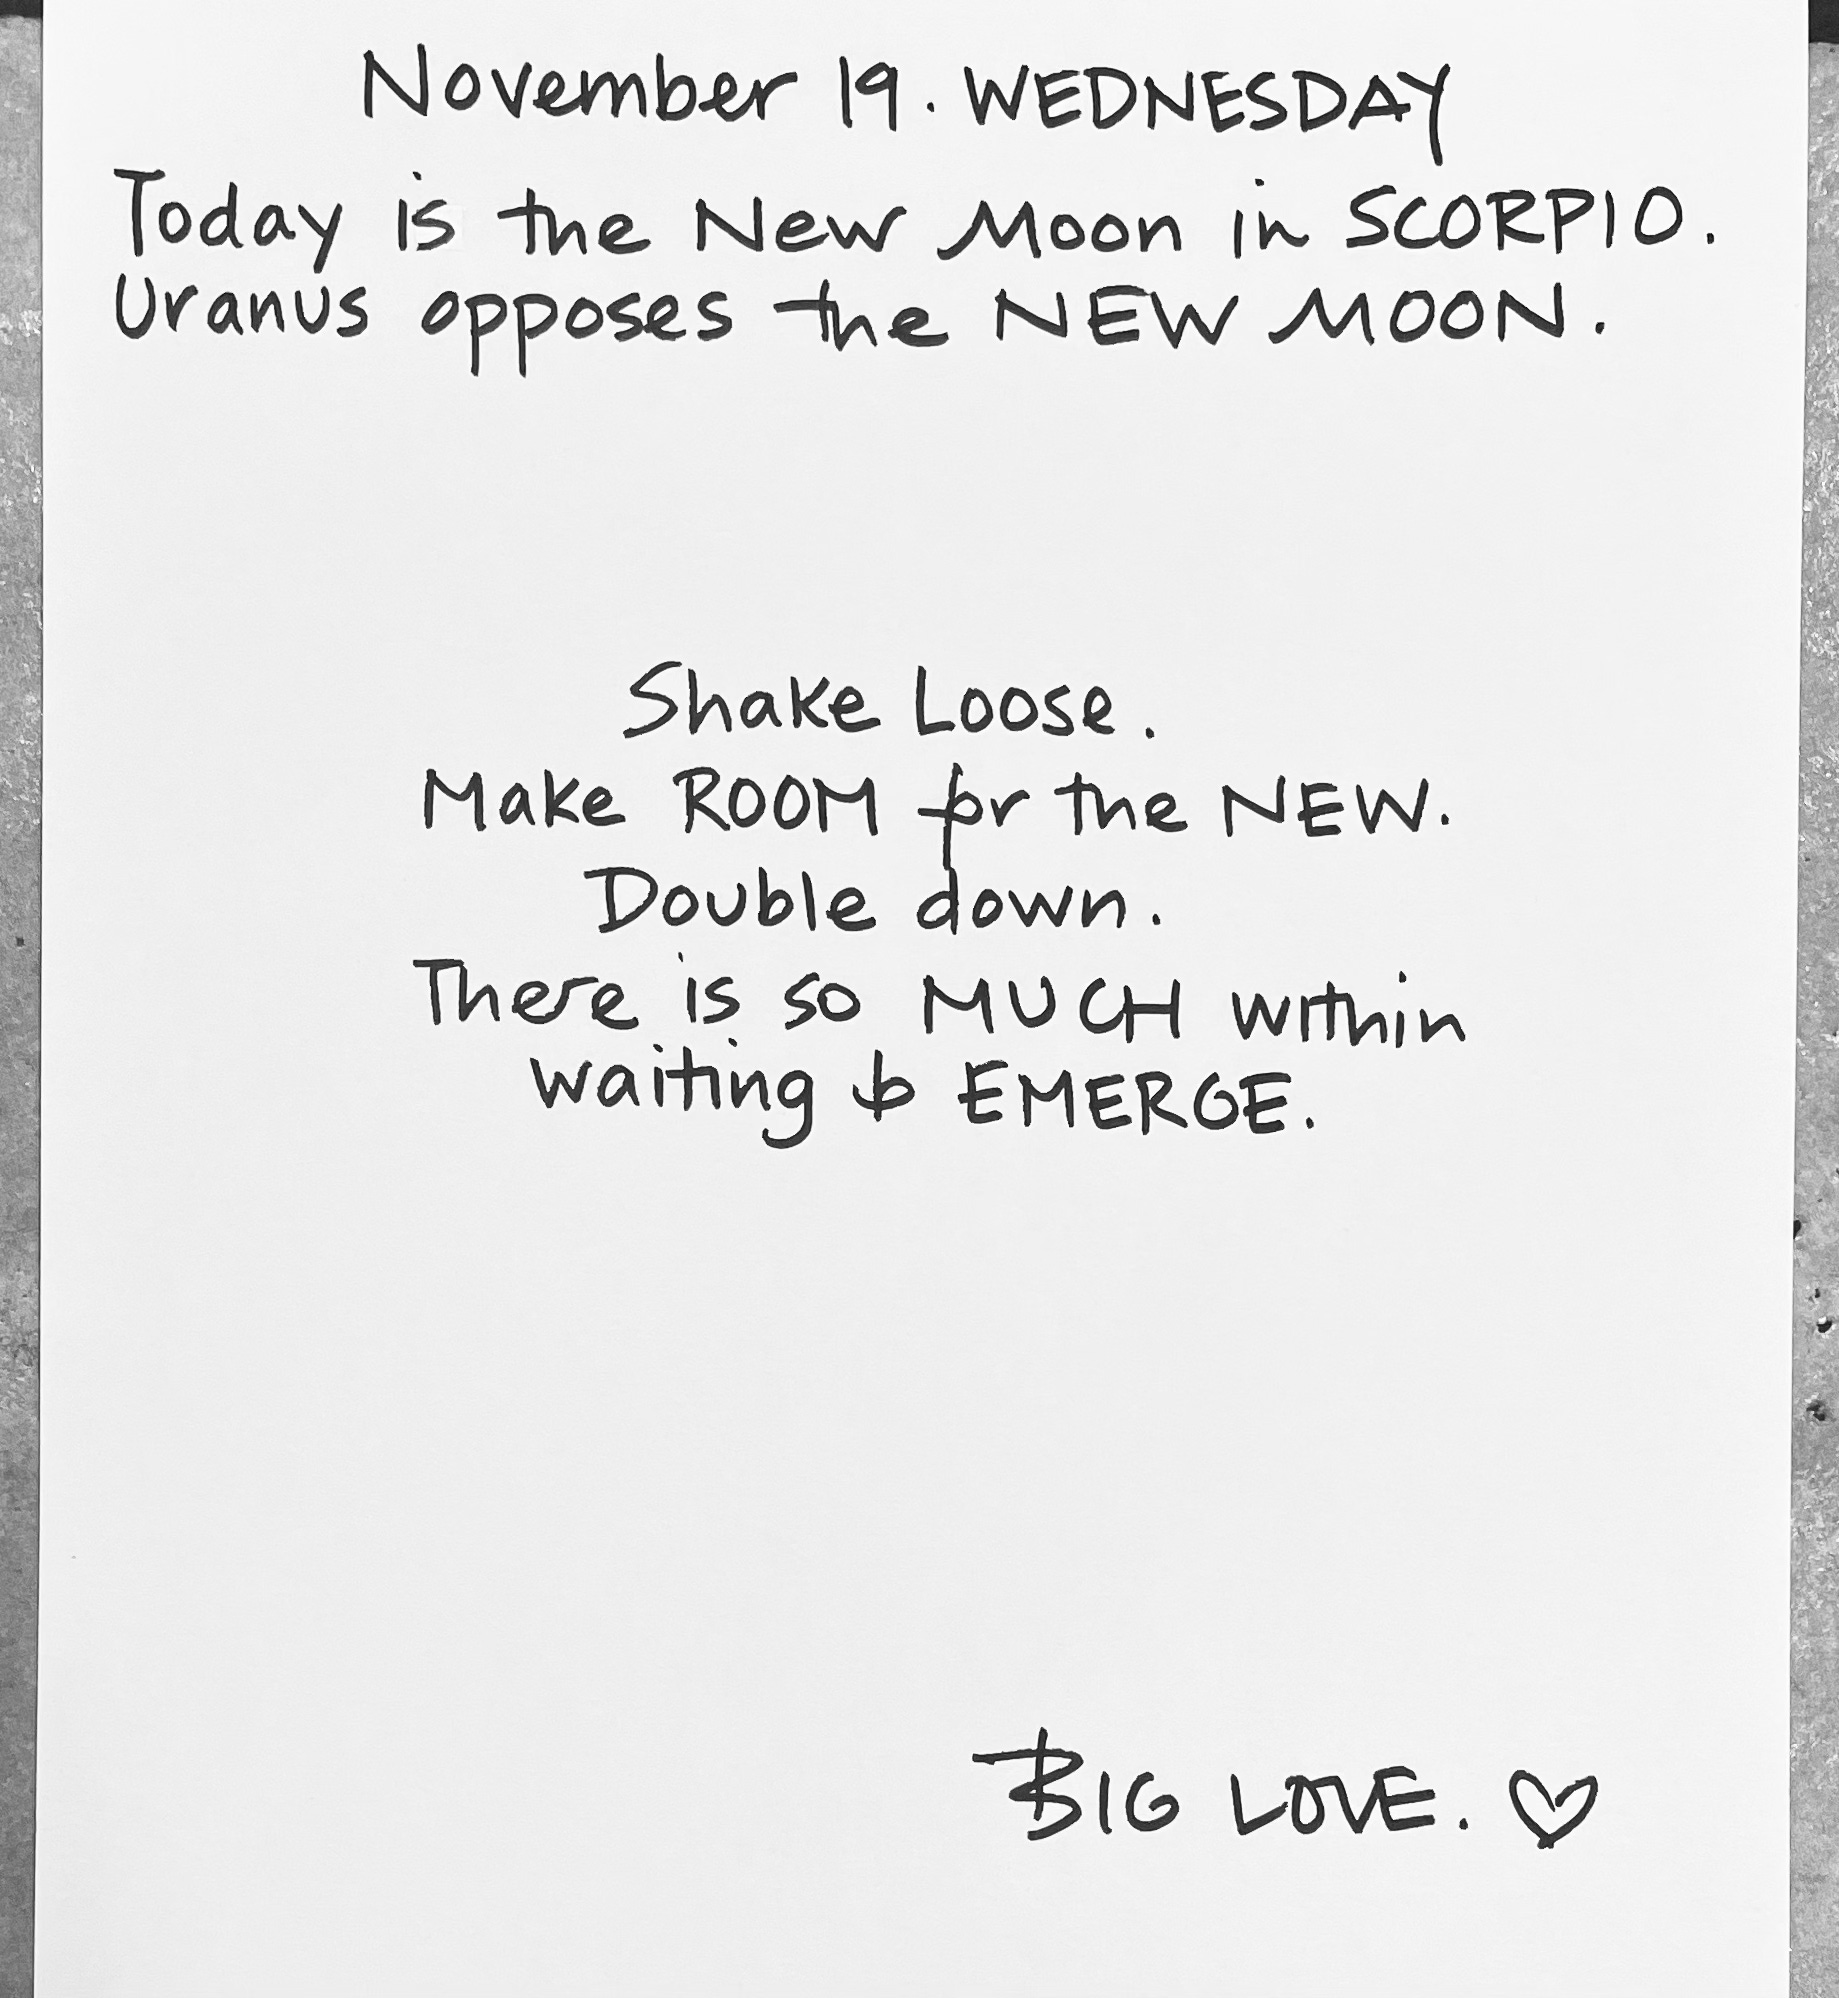 November 19. WEDNESDAY
Today is the New Moon in SCORPIO.
Uranus opposes the NEW MOON.
Shake Loose.
Make ROOM for the NEW.
Double down.
There is so MUCH within
waiting to EMERGE.
BIG LOVE. ♡